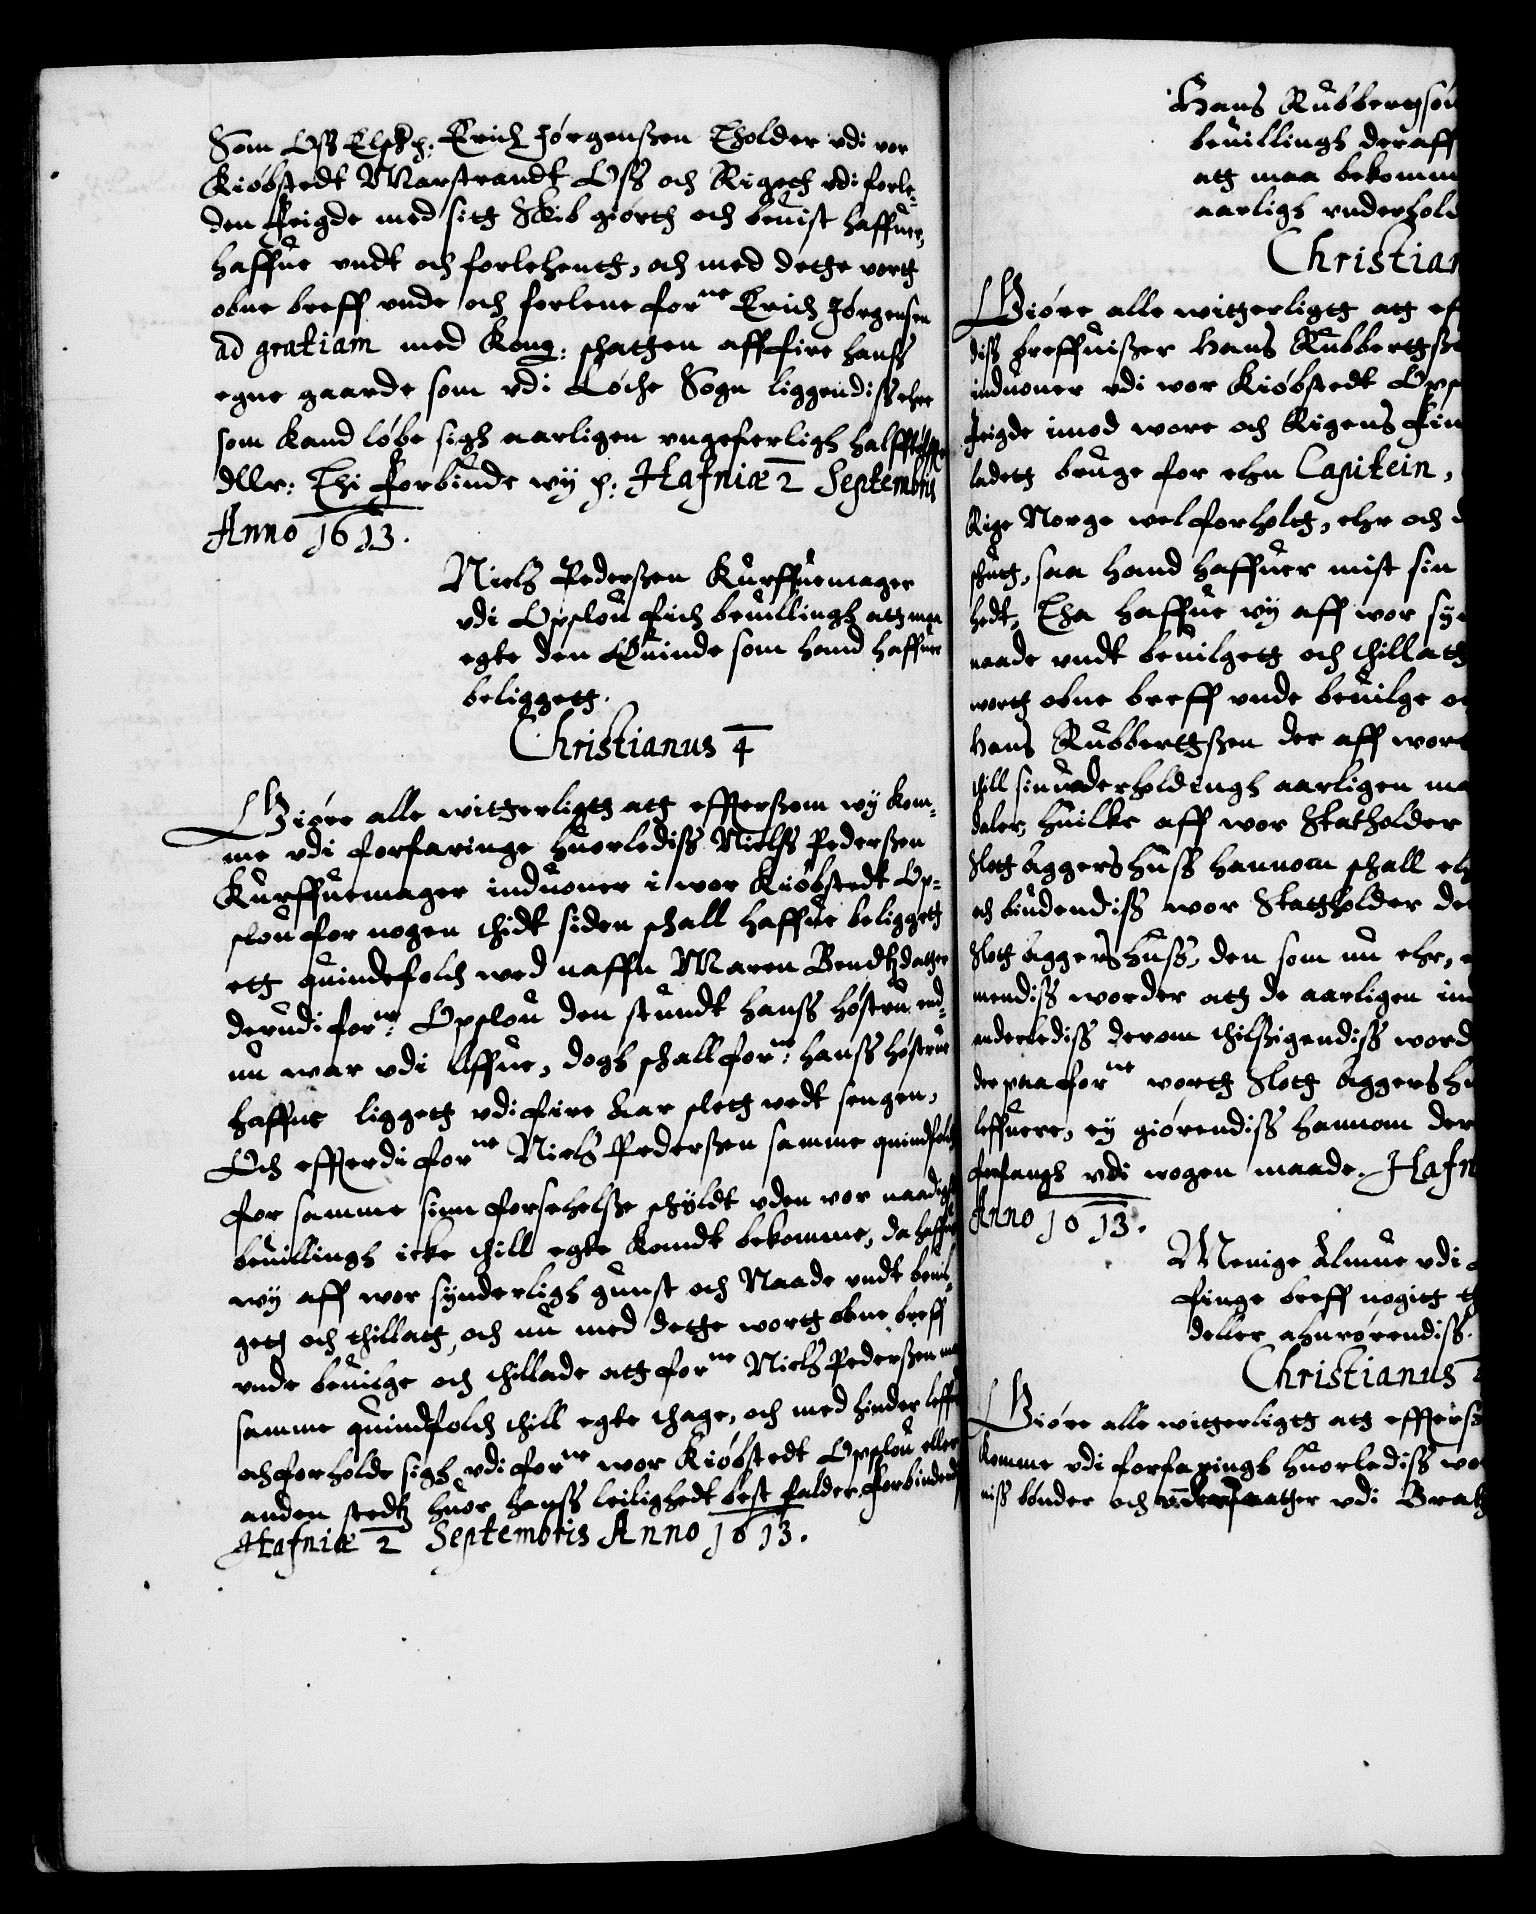 Som Oss Elske: Erich Jørgenßen Tholder vdi vor
Kiøbstedt Marstrandt Oss och Rigeth vdi forle¬
den feigde med sitt Skib giørth och beuist haffuer,
haffue vndt och forlehentt, och med dette vortt
obne breff vnde och forlene forne Erich Jørgensen
ad gratiam med Kong: schatten aff fire hanss
egne gaarde som vdi Løche Sogn liggendiss ehre
som kand løbe sigh aarligen vngeferligh halfft
dllr: Thi forbinde wy p: Hafniæ 2 Septembris
Anno 1613.
Niels Pederßen Kurffuemager
vdi Opslou fich beuillingh att maa
egte den Quinde som hand haffuer
beliggett.
Christianus 4
Giøre alle witterligtt att effterßom wy kom¬
me vdi forfaringe huorlediss Nielss Pederßen
Kurffuemager induoner i wor Kiøbstedt Op¬
slou for nogen thidt siden schall haffue beliggett
ett quindefolch wed naffn Maren Bendtzdatter
derudi forne: Opslou den stundt hanss høstru end¬
nu war vdi liffue, dogh schall forne: hanss høstrue
haffue liggett vdi fire Aar slett wedt sengen,
Och effterdi forne Niels Pederßen samme quindfolch
for samme sinn forsehelße schyldt vden vor naadigste
beuillingh icke thill egte kandt bekomme, da haffue
wy aff wor synderligh gunst och Naade vndt beuil¬
gett och thillatt, och nu med dette wortt obne breff
vnde beuilge och thillade att forne Niels Pederßen maa
samme quindfolch thill egte thage, och med hinder leffue
och forholde sigh vdi forne wor Kiøbstedt Opslou eller
anden stedtz huor hanss leilighedt best falder. forbindendis
Hafniæ 2 Septembris Anno 1613.
Hans Rubbertsøn
beuillingh deraff
att maa bekomm
aarligh vnderhold
Christian
Giøre alle witterligtt att ef
diss breffuißer Hans Rubbertßen
induoner vdi wor Kiøbstedt Ops
feigde imod wore och Rigens fin
ladett bruge for ehn Capitein,
Rige Norge wel forholtt, ehr och
schutt, saa hand haffuer mist sin
hedt, Tha haffue wy aff wor syn
naade vndt beuilgett och thillatt
wortt obne breff vnde beuilge oc
Hans Rubbertßen der aff wore
thill sin vnderholdingh aarligen ma
daler, huilke aff wor Statholder
Slott Aggershuss hannom schall eh
och biudendiss wor Statholder de
Slott Aggershuss, den som nu ehr,
mendiss worder att de aarligen in
anderlediss derom thilsigendiss word
der paa forne wortt Slott Aggershu
leffuere, ey giørendiss hannom der
forfangh vdi nogen maade. Hafn
Anno 1613.
Menige Almue vdi
finge breff nogitt
deller ahnrørendiss.
Christianus
Giøre alle witterligtt att effterß
komme vdi forfaringh huorlediss wo
niss bønder och vndersaather vdi Brat